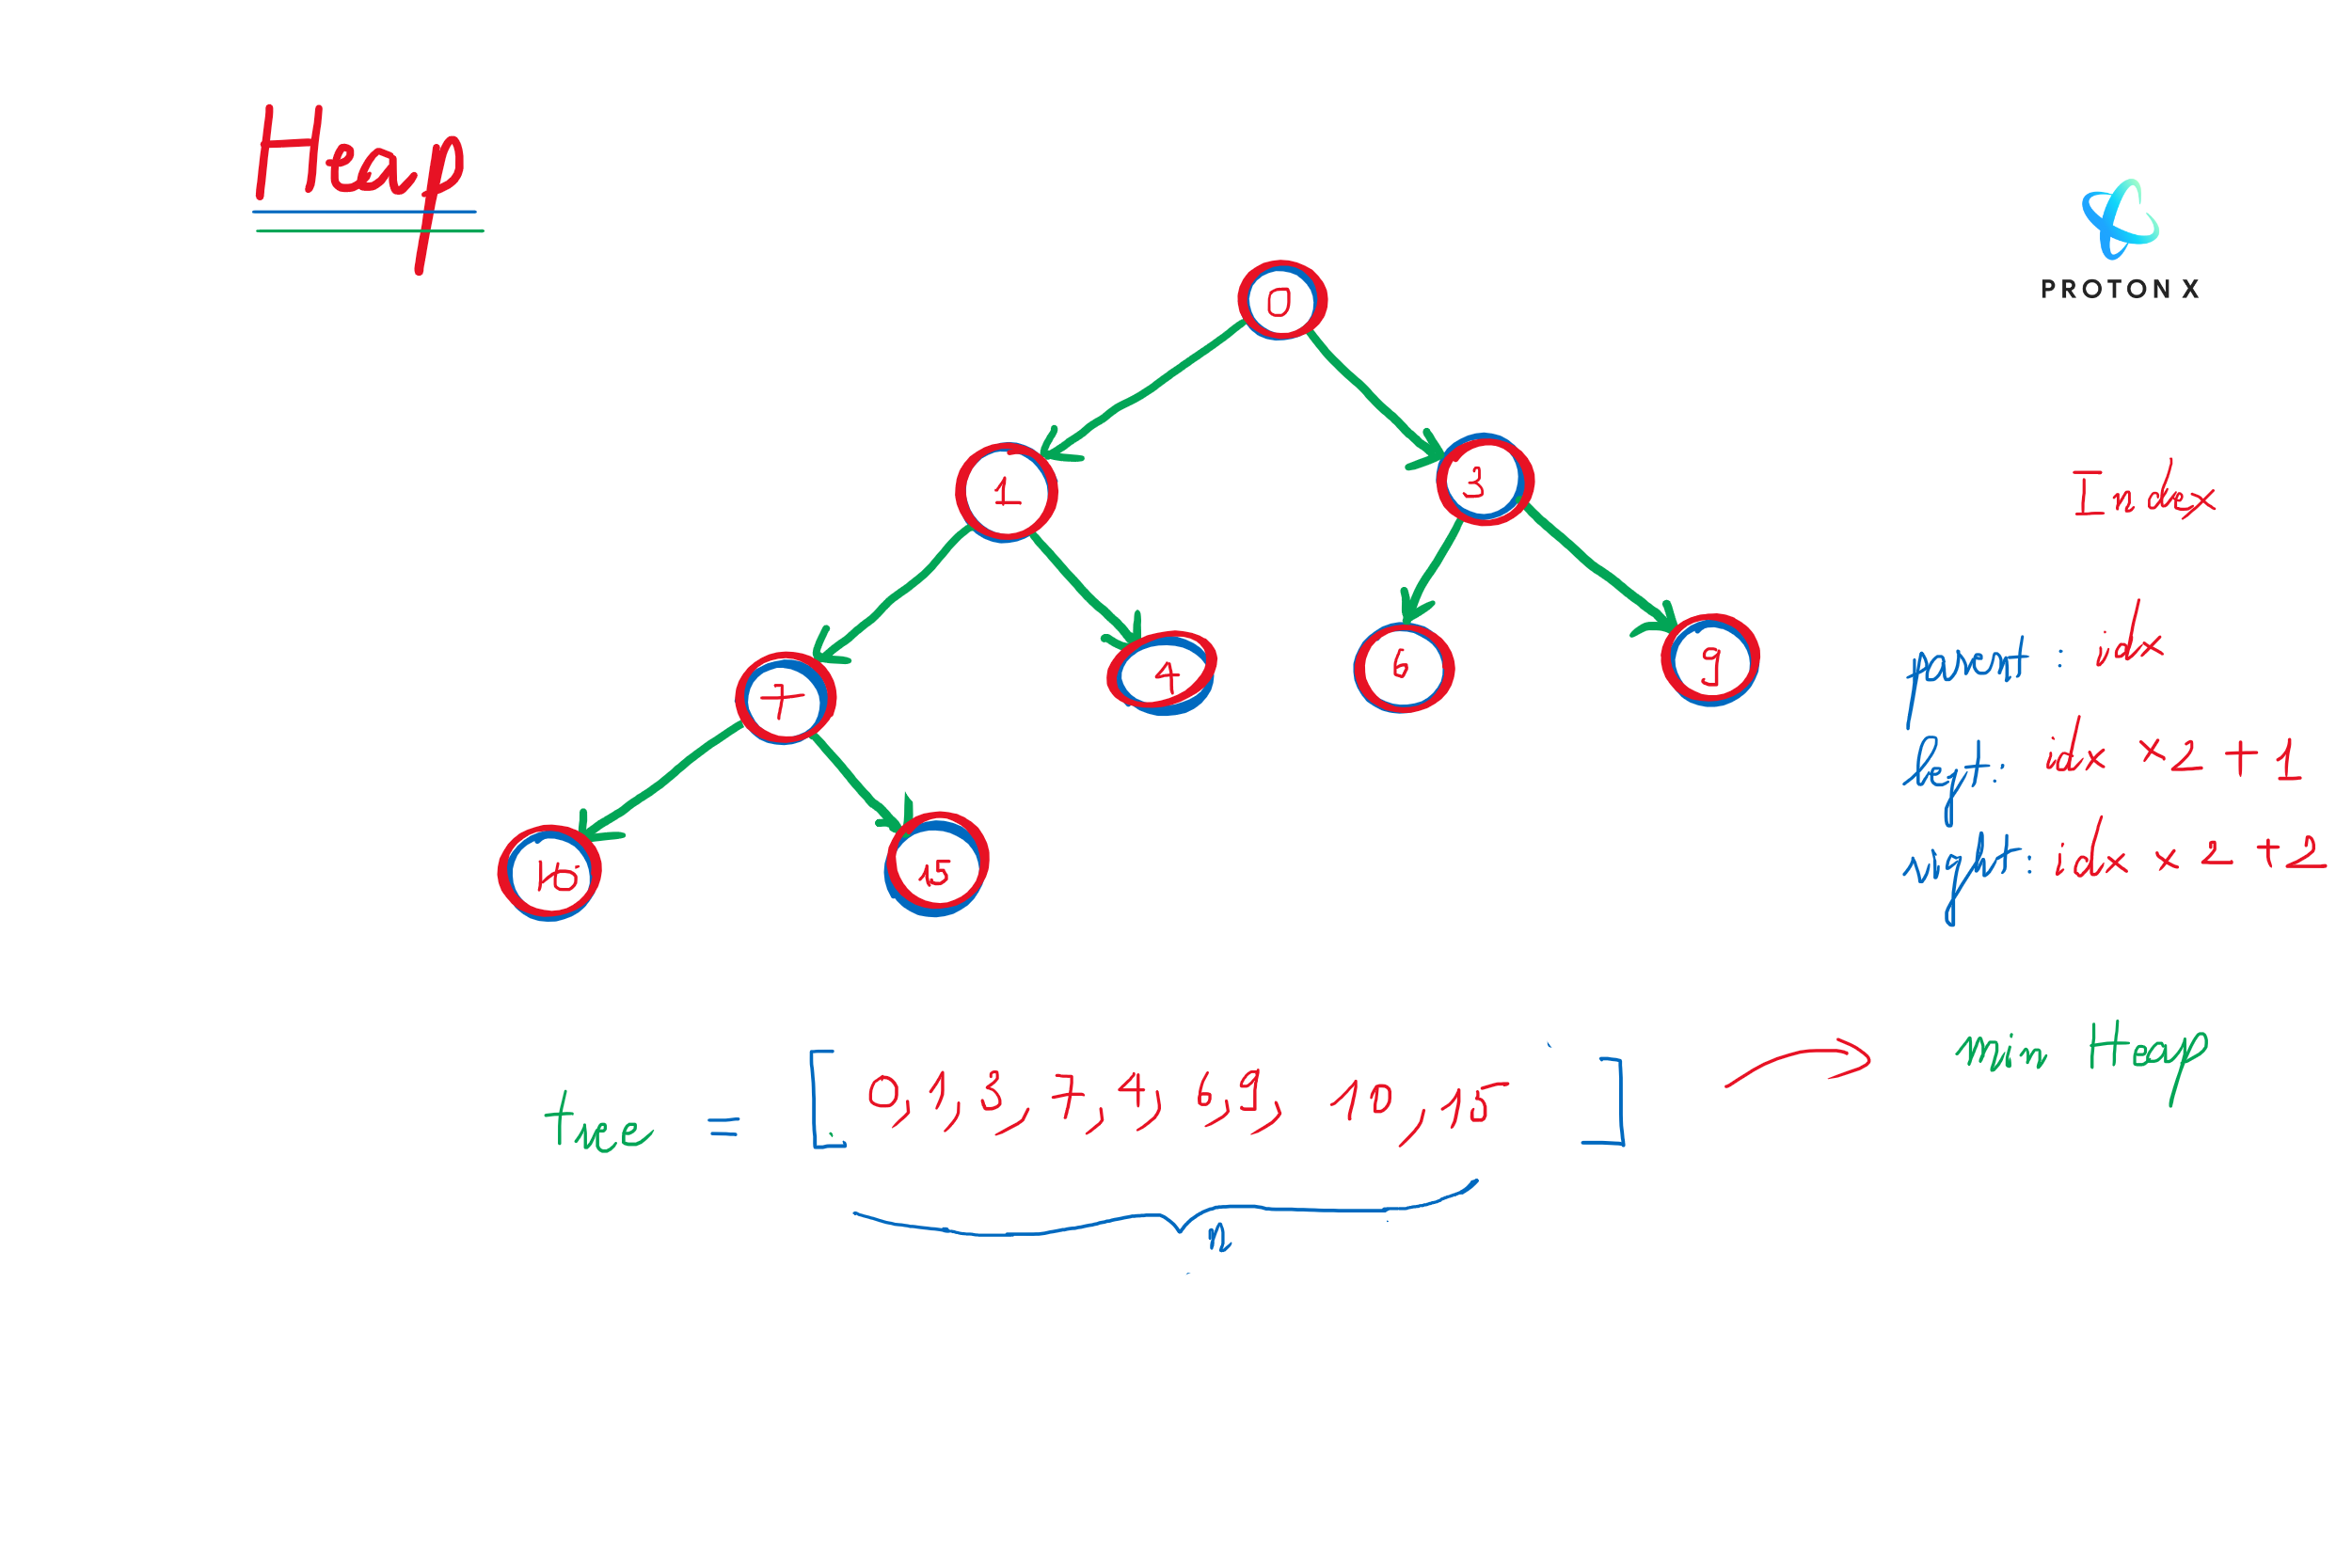 Heap
PROTON X
0
1 3
7 4 6 9
10 15
Index
parent : idx
left : idx × 2 + 1
right : idx × 2 + 2
tree = [ 0, 1, 3, 7, 4, 6, 9, 10, 15 ]
min Heap
n